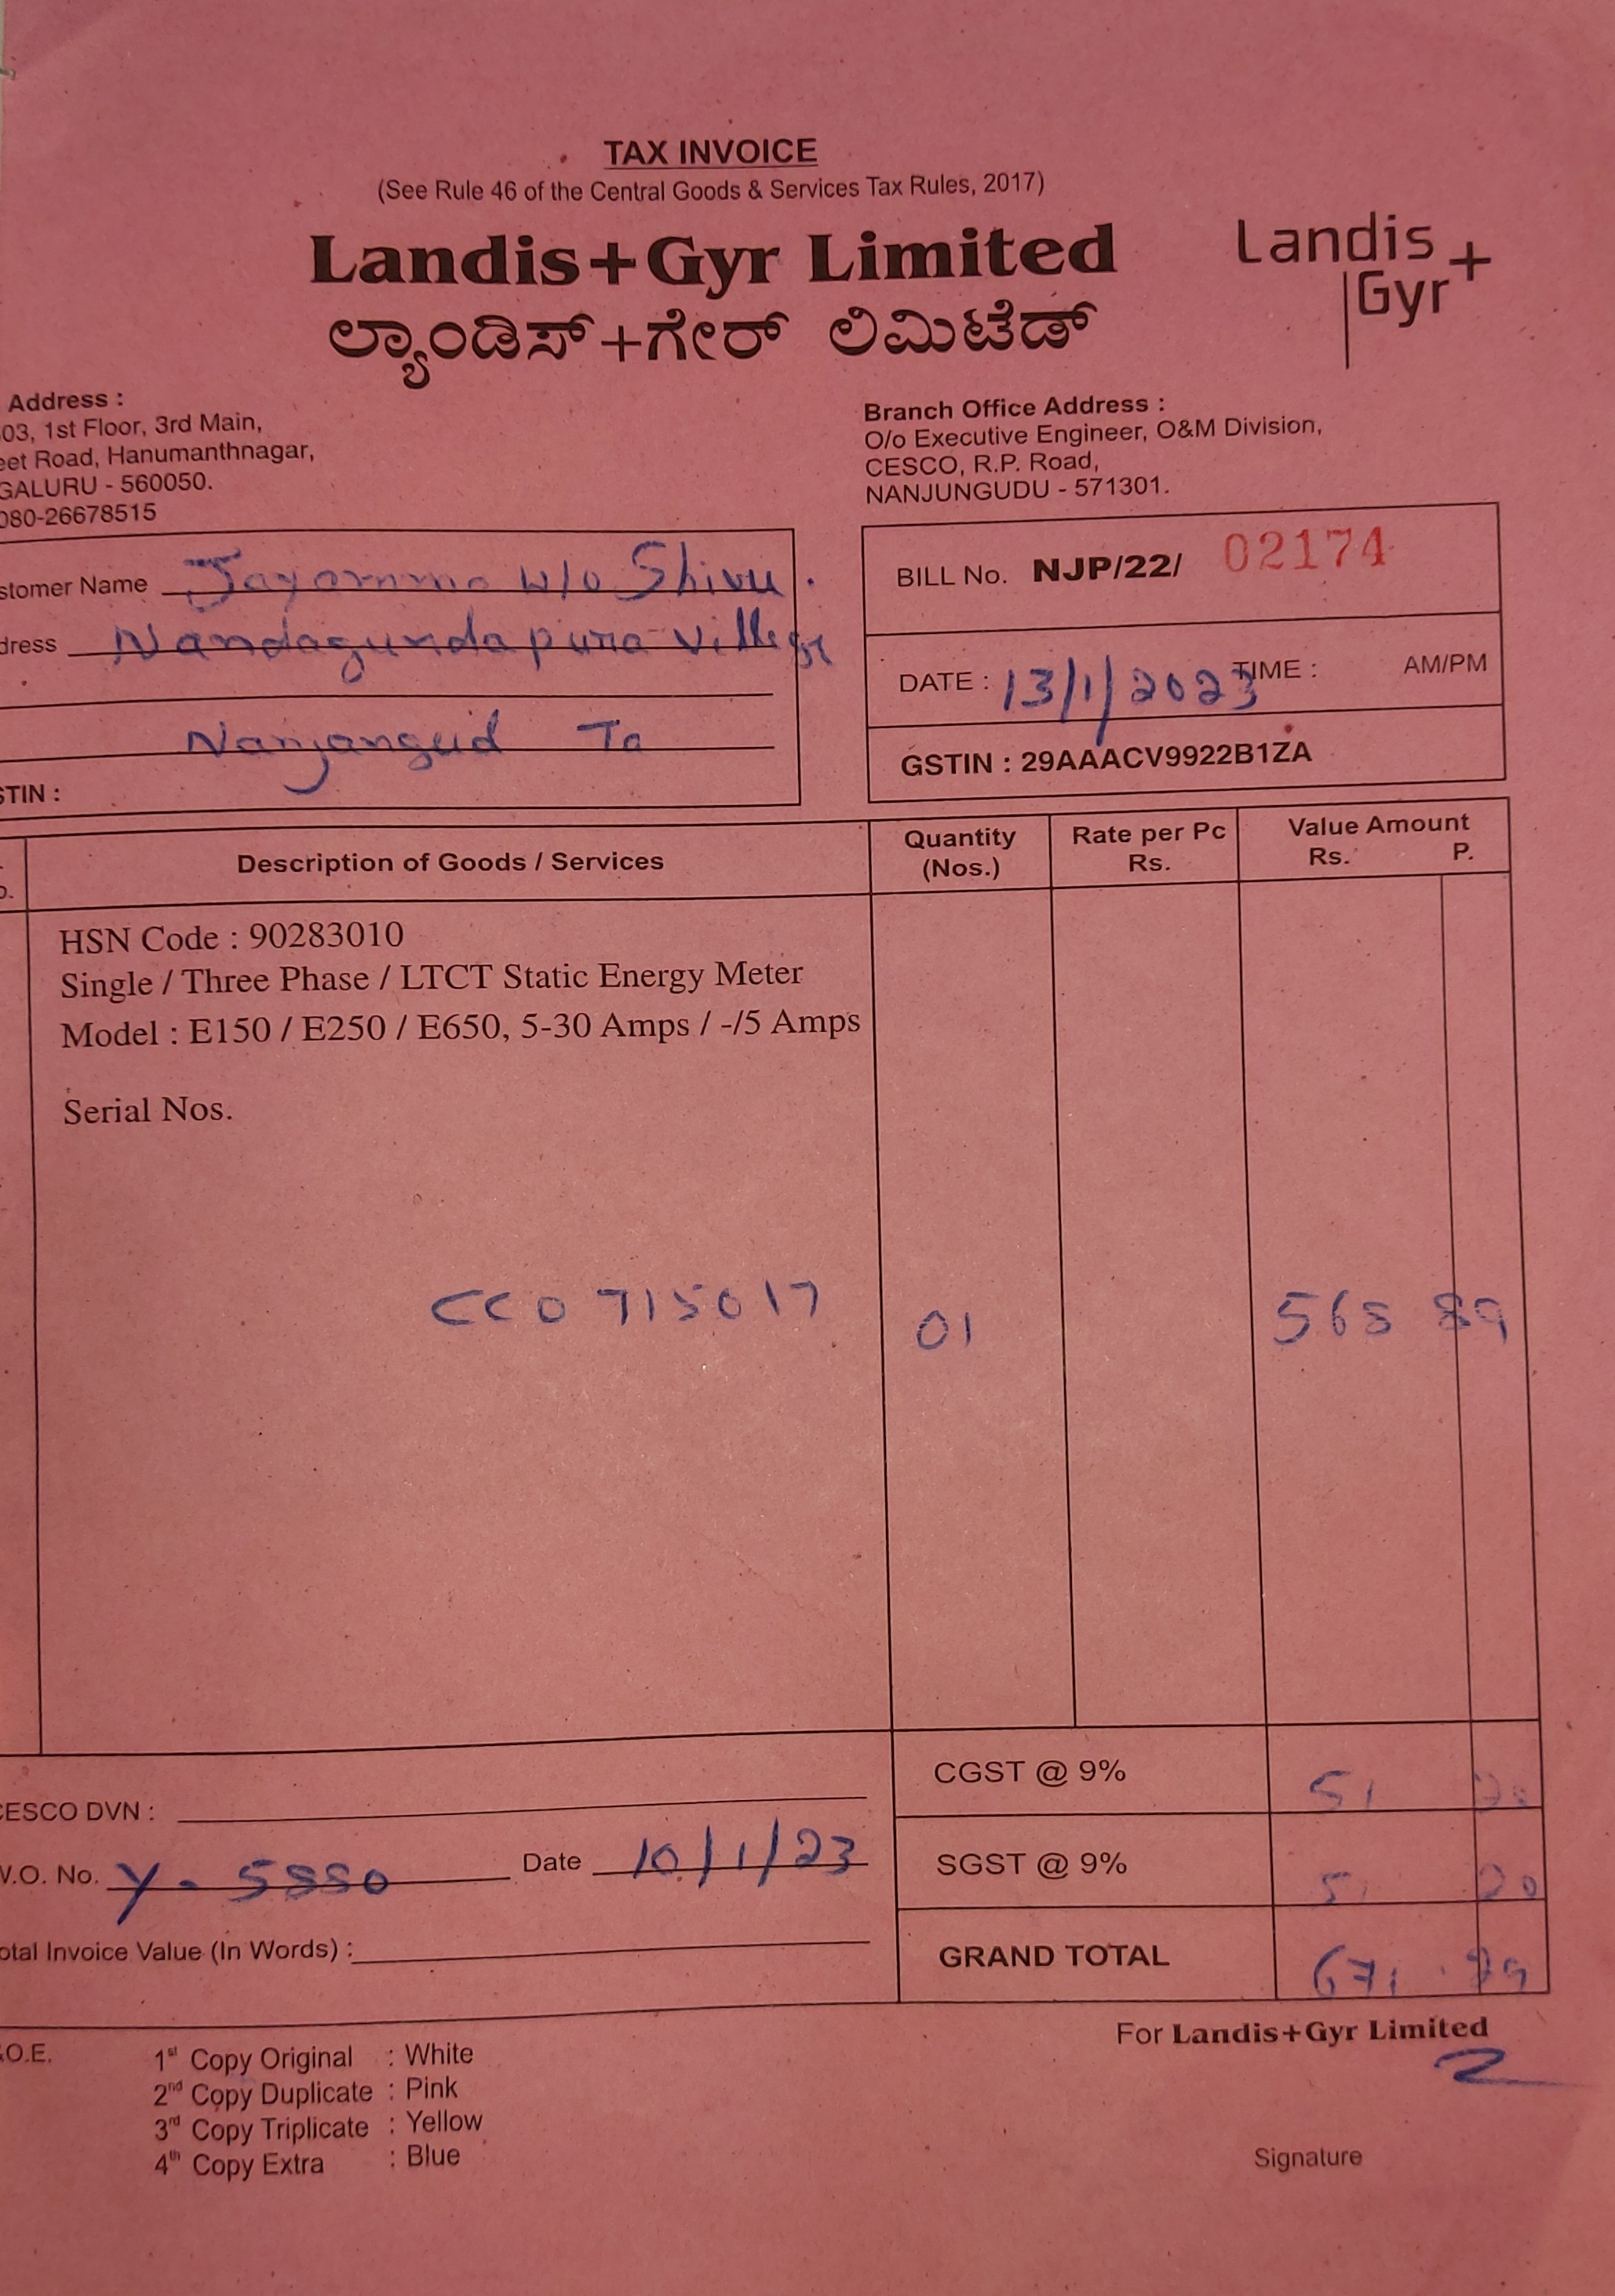 TAX INVOICE
(See Rule 46 of the Central Goods & Services Tax Rules, 2017)
Landis+Gyr Limited
ಲ್ಯಾಂಡಿಸ್+ಗೇರ್ ಲಿಮಿಟೆಡ್
Landis
Gyr+
Address :
03, 1st Floor, 3rd Main,
eet Road, Hanumanthnagar,
GALURU - 560050.
080-26678515
Branch Office Address :
O/o Executive Engineer, O&M Division,
CESCO, R.P. Road,
NANJUNGUDU - 571301.
stomer Name Jayamma w/o Shivu
dress Nandagundapura village
Nanjangud Ta
STIN :
BILL No. NJP/22/ 02174
DATE : 13/1/2023 TIME : AM/PM
GSTIN : 29AAACV9922B1ZA
Description of Goods / Services
Quantity (Nos.)
Rate per Pc Rs.
Value Amount Rs. P.
HSN Code : 90283010
Single / Three Phase / LTCT Static Energy Meter
Model : E150 / E250 / E650, 5-30 Amps / -/5 Amps
Serial Nos.
CC0715017 01 568 89
CGST @ 9% 51
CESCO DVN :
SGST @ 9% 51 20
W.O. No. Y- Date 10/1/23
GRAND TOTAL 671
otal Invoice Value (In Words) :
For Landis+Gyr Limited
.O.E.
1st Copy Original : White
2nd Copy Duplicate : Pink
3rd Copy Triplicate : Yellow
4th Copy Extra : Blue
Signature